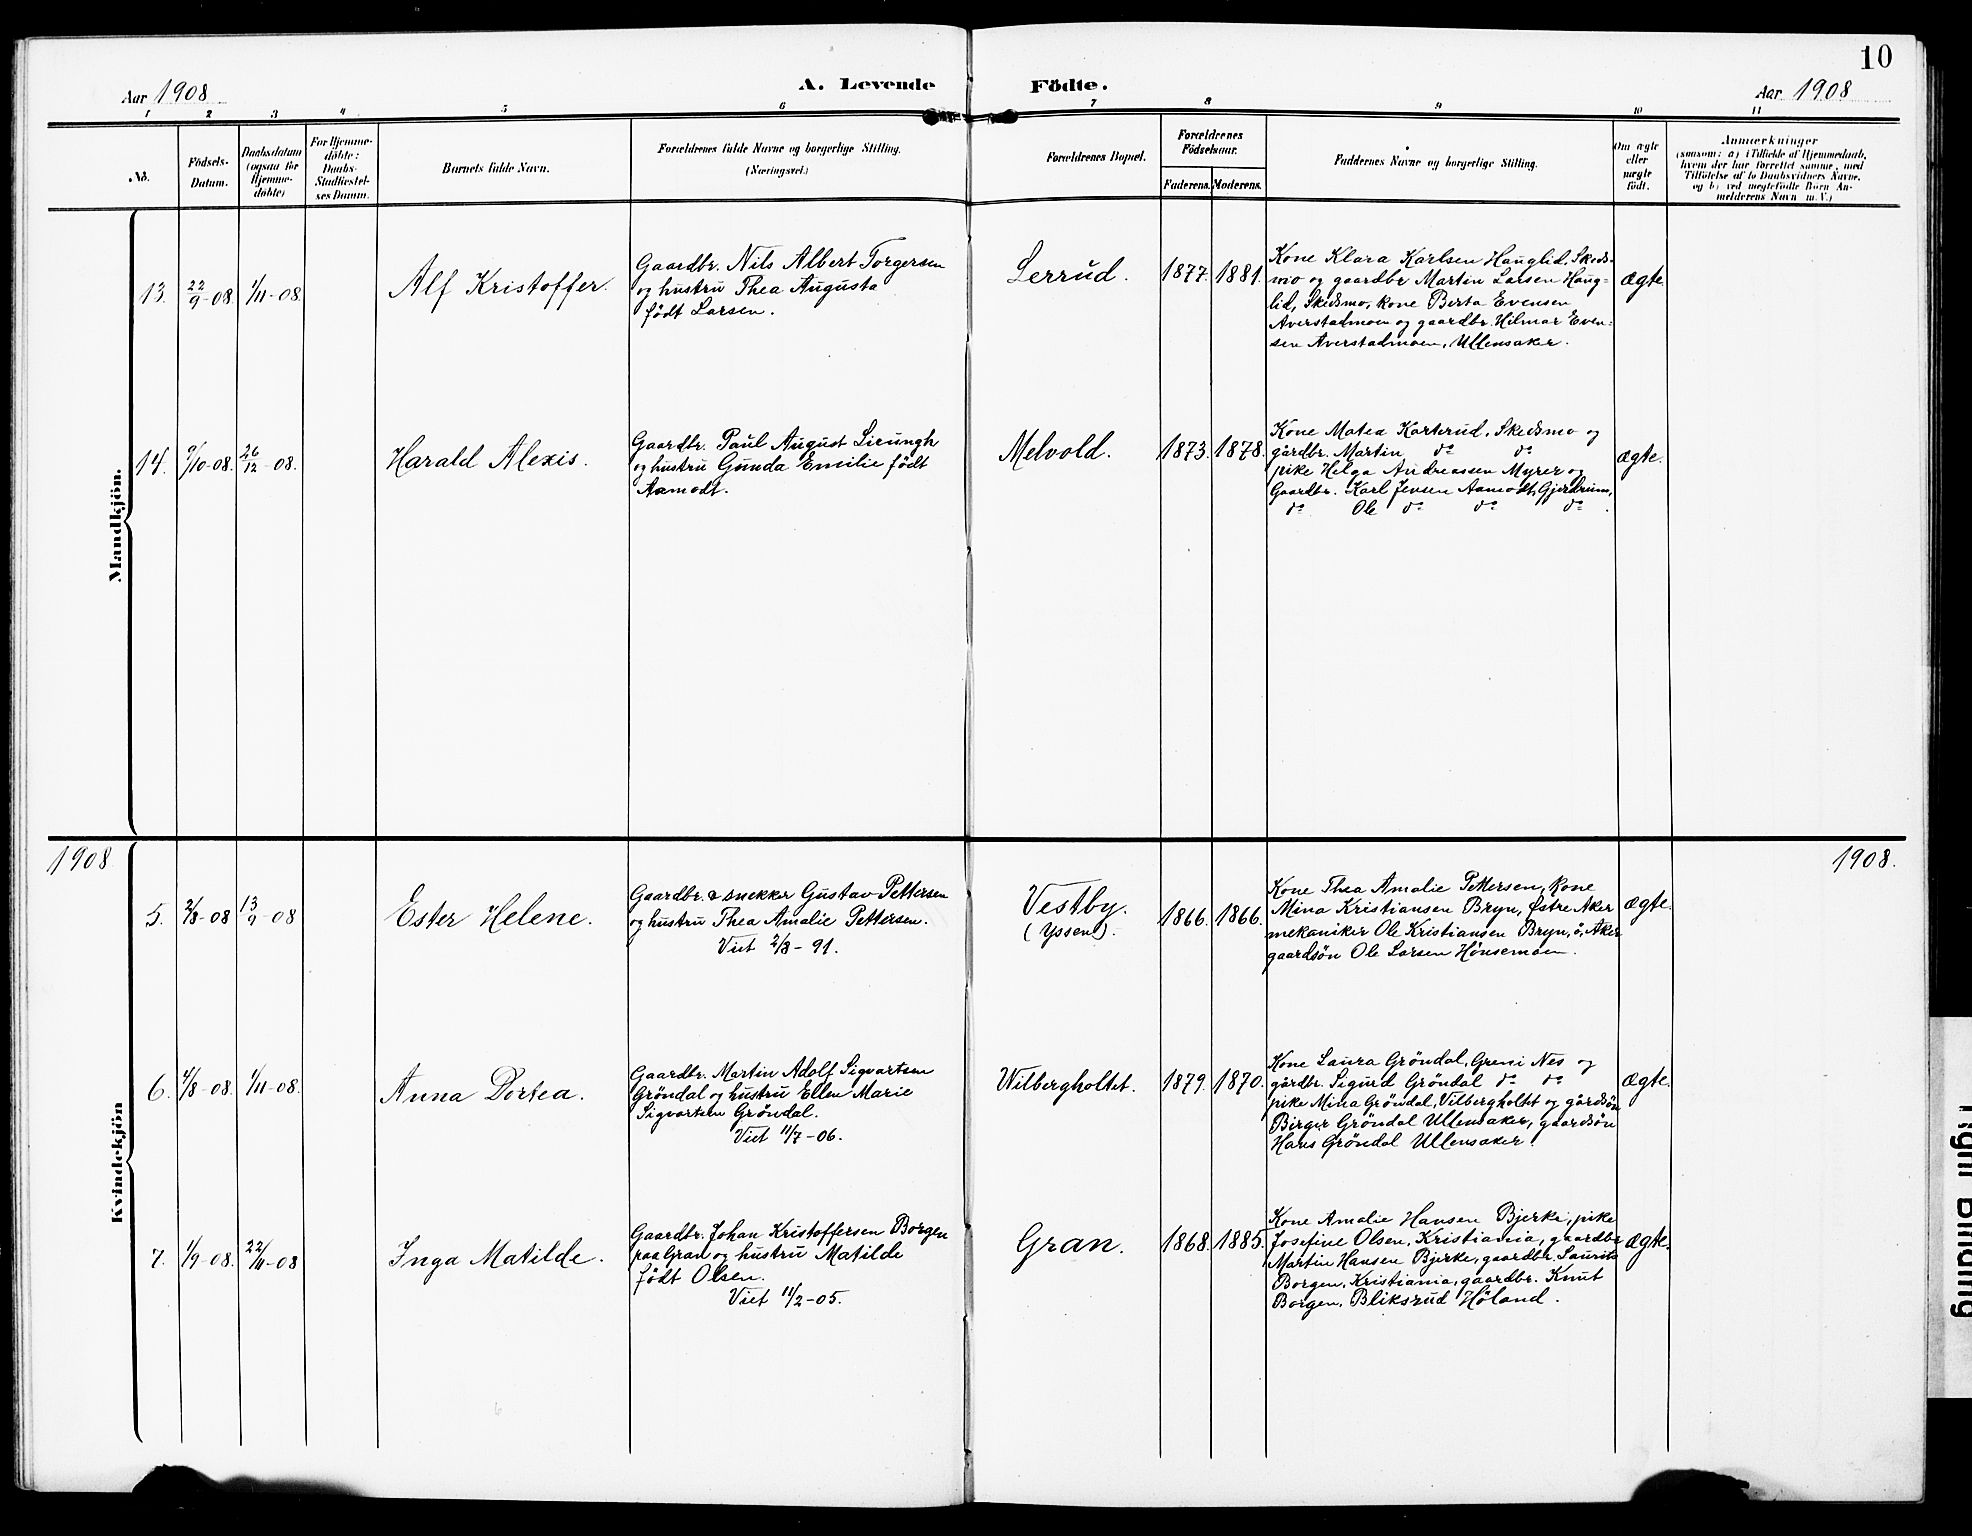 10
Aar 1908
A. Levende Födte.
Aar 1908
1 2 3 4 5 6 7 8 9 10 11
No.
Födsels-
Datum.
Daabsdatum
(ogsaa for
Hjemme-
döbte)
For Hjemme-
döbte:
Daabs-
Stadfæstel-
ses Datum.
Barnets fulde Navn.
Forældrenes fulde Navne og borgerlige Stilling.
(Næringsvei.)
Forældrenes Bopæl.
Forældrenes
Födselsaar.
Faderens. Moderens.
Faddernes Navne og borgerlige Stilling.
Om ægte
eller
uægte
födt.
Anmærkninger
(saasom: a) i Tilfælde af Hjemmedaab,
hvem der har forrettet samme, med
Tilföielse af to Daabsvidners Navne,
og b) ved uægtefödte Börn An-
melderens Navn m. V.)
Mandkjön.
13. 22/9-08. 1/11-08.
Alf Kristoffer.
Gaardbr. Nils Albert Torgersen
og hustru Thea Augusta
födt Larsen.
Lerrud.
1877. 1881.
Kone Klara Karlsen Hauglid, Skeds-
mo og gaardbr Martin Larsen Haug-
lid, Skedsmo, kone Berta Evensen
Averstadmoen og gaardbr. Hilmar Even-
sen Averstadmoen, Ullensaker.
Ægte
14. 9/10-08. 26/12-08.
Harald Alexis.
Gaardbr. Paul August Lirungh
og hustru Gunda Emilie födt
Aamodt.
Melvold.
1873. 1878.
Kone Matea Karterud, Skedsmo og
gårdbr. Martin do do
pike Helga Andreassen Myrer og
Gaardbr. Karl Jensen Aamodt, Gjerdrum,
do Ole do do do.
Ægte.
1908
1908.
Kvindekjön
5. 2/8-08 13/9-08
Ester Helene.
Gaardbr. & snekker Gustav Pettersen
og hustru Thea Amalie Pettersen.
Viet 2/8-91.
Vestby.
(Yssen).
1866. 1866.
Kone Thea Amalie Pettersen, kone
Mina Kristiansen Bryn, Østre Aker
mekaniker Ole Kristiansen Bryn, ö. Aker
gaardsön Ole Larsen Hönsemoen.
Ægte.
6. 4/8-08. 1/11-08.
Anna Dortea.
Gaardbr. Martin Adolf Sigvartsen
Gröndal og hustru Ellen Marie
Sigvartsen Gröndal.
Viet 11/7-06.
Wilbergholtet.
1879. 1870.
Kone Laura Gröndal, Greni Nes og
gårdbr. Sigurd Gröndal do do
pike Mina Gröndal, Vilbergholtet og gårdsön
Birger Gröndal Ullensaker, gaardsön
Hans Gröndal Ullensaker.
Ægte.
7. 1/9-08. 22/11-08
Inga Matilde.
Gaardbr. Johan Kristoffersen Borgen
paa Gran og hustru Matilde
födt Olsen.
Viet 11/2-05.
Gran.
1868. 1885.
Kone Amalie Hansen Bjerke, pike
Josefine Olsen, Kristiania, gaardbr
Martin Hansen Bjerke, gaardbr. Laurits
Borgen, Kristiania, gaardbr. Knut
Borgen, Bliksrud Höland.
Ægte.